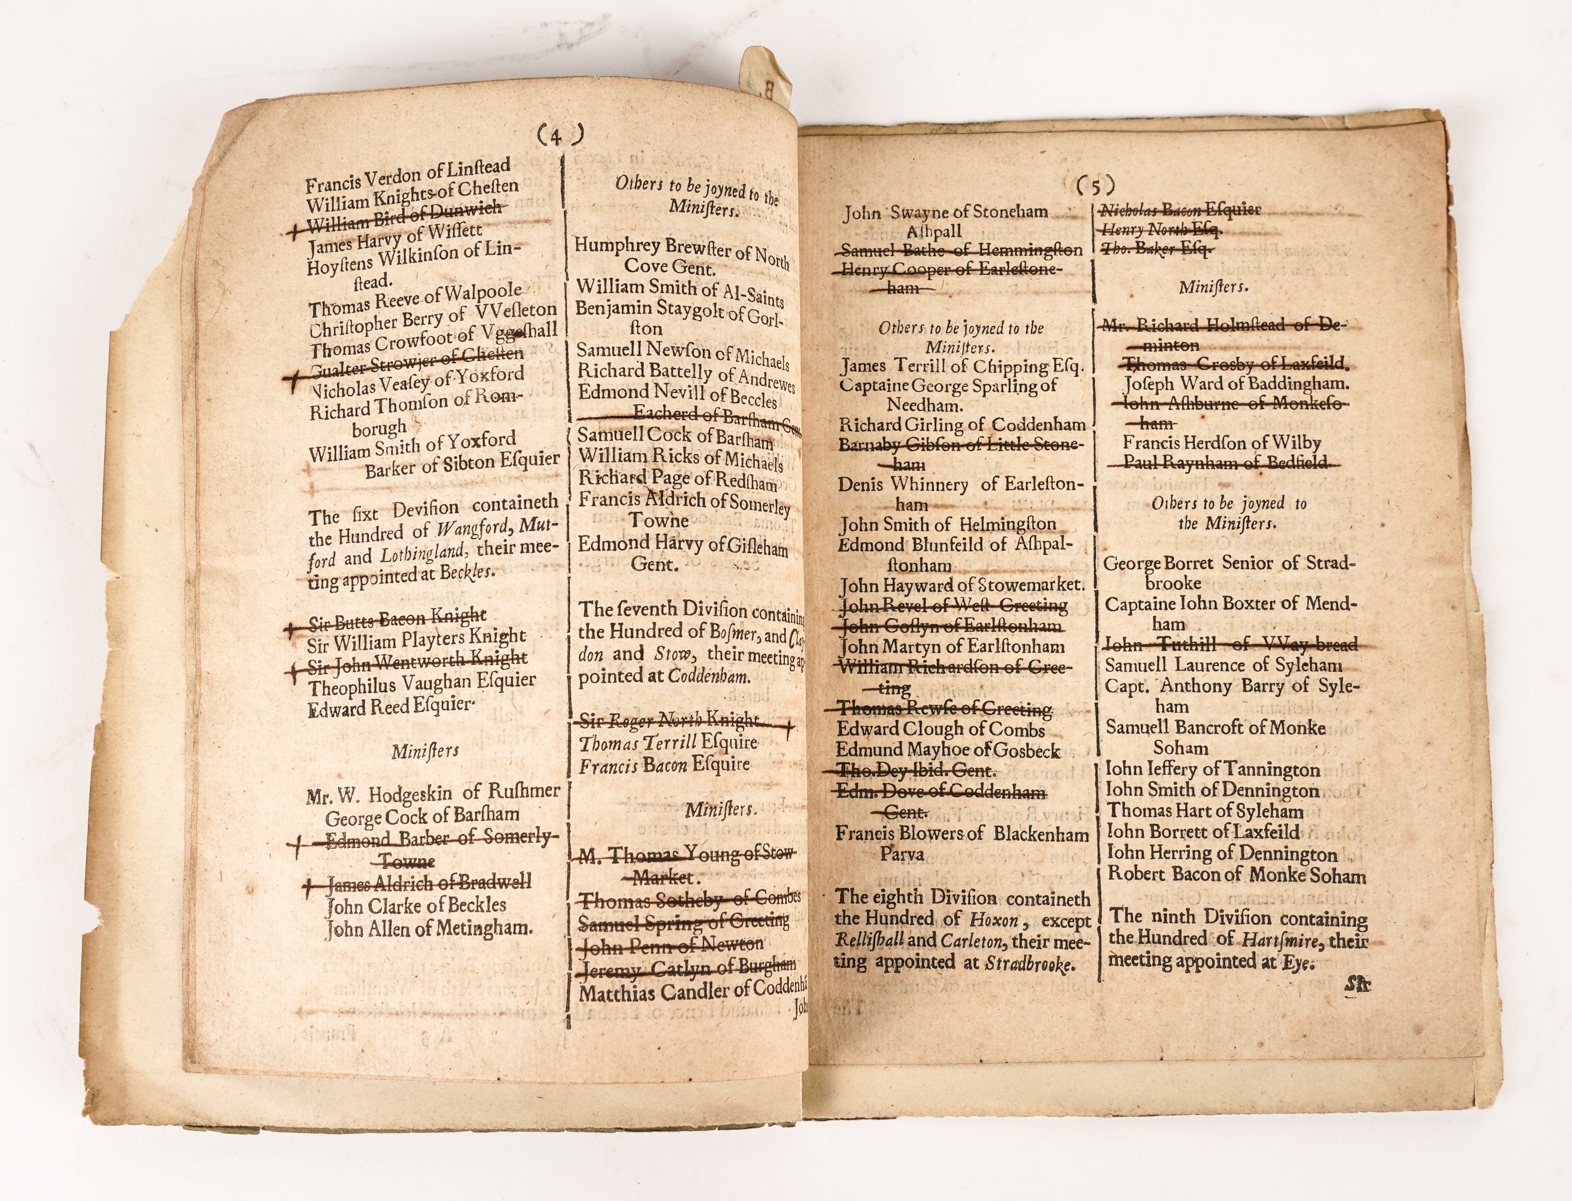 (4)
Francis Verdon of Linſtead
William Knights of Cheſten
William Bird of Dunwich
James Harvy of Wiſſett
Hoyſtens Wilkinſon of Lin-
ſtead.
Thomas Reeve of Walpoole
Chriſtopher Berry of VVeſleton
Thomas Crowfoot of Vggeſhall
Gualter Strowjer of Cheſten
Nicholas Veaſey of Yoxford
Richard Thomſon of Rom-
borugh
William Smith of Yoxford
Barker of Sibton Eſquier
The ſixt Deviſion containeth
the Hundred of Wangford, Mut-
ford and Lothingland, their mee-
ting appointed at Beckles.
Sir Butts Bacon Knight
Sir William Playters Knight
Sir John Wentworth Knight
Theophilus Vaughan Eſquier
Edward Reed Eſquier.
Miniſters
Mr. W. Hodgeskin of Ruſhmer
George Cock of Barſham
Edmond Barber of Somerly-
Towne
James Aldrich of Bradwell
John Clarke of Beckles
John Allen of Metingham.
Others to be joyned to the
Miniſters.
Humphrey Brewſter of North
Cove Gent.
William Smith of Al-Saints
Benjamin Staygolt of Gorl-
ſton
Samuell Newſon of Michaels
Richard Battelly of Andrewes
Edmond Nevill of Beccles
Eacherd of Barſham
Samuell Cock of Barſham
William Ricks of Michaels
Richard Page of Redſham
Francis Aldrich of Somerley
Towne
Edmond Harvy of Giſleham
Gent.
The ſeventh Diviſion containing
the Hundred of Boſmer, and Clay
don and Stow, their meeting ap
pointed at Coddenham.
Sir Roger North Knight
Thomas Terrill Eſquire
Francis Bacon Eſquire
Miniſters.
M. Thomas Young of Stow
Market.
Thomas Sotheby of Combes
Samuel Spring of Greeting
John Penn of Newton
Jeremy Catlyn of Burgham
Matthias Candler of Coddenhā
Joh
(5)
John Swayne of Stoneham
Aſhpall
Samuel Bathe of Hemmingſton
Henry Cooper of Earleſtone-
ham
Others to be joyned to the
Miniſters.
James Terrill of Chipping Eſq.
Captaine George Sparling of
Needham.
Richard Girling of Coddenham
Barnaby Gibſon of Little Stone-
ham
Denis Whinnery of Earleſton-
ham
John Smith of Helmingſton
Edmond Blunfeild of Aſhpal-
ſtonham
John Hayward of Stowemarket.
John Revel of Weſt Greeting
John Goſlyn of Earlſtonham
John Martyn of Earlſtonham
William Richardſon of Gree-
ting
Thomas Rewſe of Greeting
Edward Clough of Combs
Edmund Mayhoe of Gosbeck
Tho. Dey Ibid. Gent.
Edm. Dove of Coddenham
Gent.
Francis Blowers of Blackenham
Parva
The eighth Diviſion containeth
the Hundred of Hoxon, except
Relliſhall and Carleton, their mee-
ting appointed at Stradbrooke.
Nicholas Bacon Eſquier
Henry North Eſq.
Tho. Baker Eſq.
Miniſters.
Mr. Richard Holmſtead of De-
minton
Thomas Crosby of Laxfeild.
Joſeph Ward of Baddingham.
Iohn Aſhburne of Monkeſo-
ham
Francis Herdſon of Wilby
Paul Raynham of Bedfield
Others to be joyned to
the Miniſters.
George Borret Senior of Strad-
brooke
Captaine Iohn Boxter of Mend-
ham
John Tuthill of VVay-bread
Samuell Laurence of Syleham
Capt. Anthony Barry of Syle-
ham
Samuell Bancroft of Monke
Soham
Iohn Ieffery of Tannington
Iohn Smith of Dennington
Thomas Hart of Syleham
Iohn Borrett of Laxfeild
Iohn Herring of Dennington
Robert Bacon of Monke Soham
The ninth Diviſion containing
the Hundred of Hartſmire, their
meeting appointed at Eye.
Sir